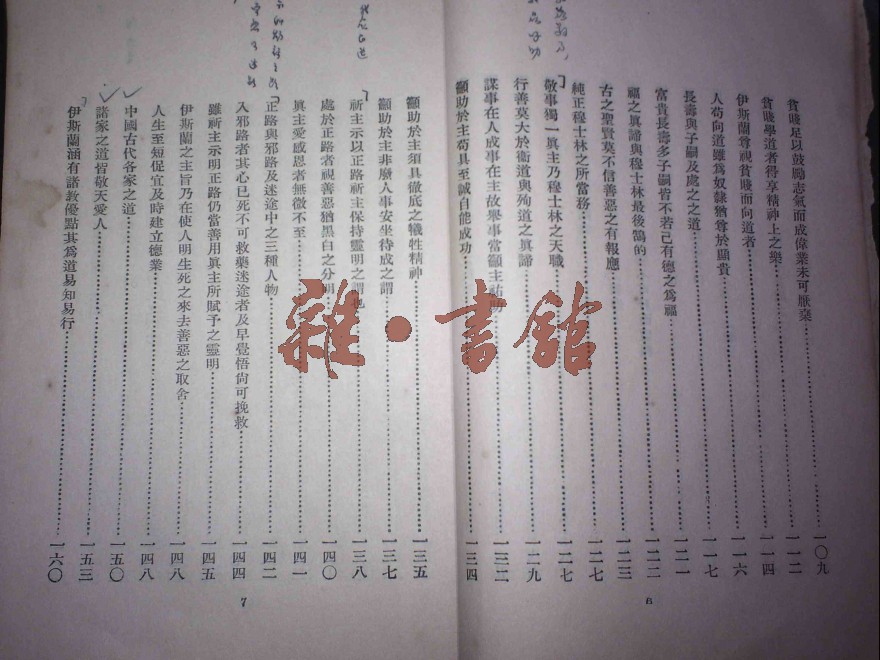 貧賤足以鼓勵志氣而成偉業未可厭棄……一〇九
貧賤學道者得享精神上之樂……一一二
伊斯蘭尊視貧賤而向道者……一一四
人苟向道雖為奴隸猶尊於顯貴……一一六
長壽與子嗣及處之之道……一一七
富貴長壽多子嗣皆不若己有德之為福……一二一
福之真諦與穆士林最後鵠的……一二二
古之聖賢莫不信善惡之有報應……一二三
純正穆士林之所當務……一二七
敬事獨一真主乃穆士林之天職……一二七
行善莫大於衛道與殉道之真諦……一二九
謀事在人成事在主故舉事當籲主祐助……一三二
籲助於主苟具至誠自能成功……一三四
6
籲助於主須具徹底之犧牲精神……一三五
籲助於主非廢人事安坐待成之謂……一三七
祈主示以正路祈主保持靈明之謂也……一三八
處於正路者視善惡猶黑白之分明……一四〇
真主愛感恩者無微不至……一四一
正路與邪路及迷途中之三種人物……一四二
入邪路者其心已死不可救藥迷途者及早覺悟尚可挽救……一四四
雖祈主示明正路仍當善用真主所賦予之靈明……一四五
伊斯蘭之主旨乃在使人明生死之來去善惡之取舍……一四八
人生至短促宜及時建立德業……一四八
中國古代各家之道……一五〇
諸家之道皆敬天愛人……一五三
伊斯蘭涵有諸教優點其為道易知易行……一六〇
7
雜·書館